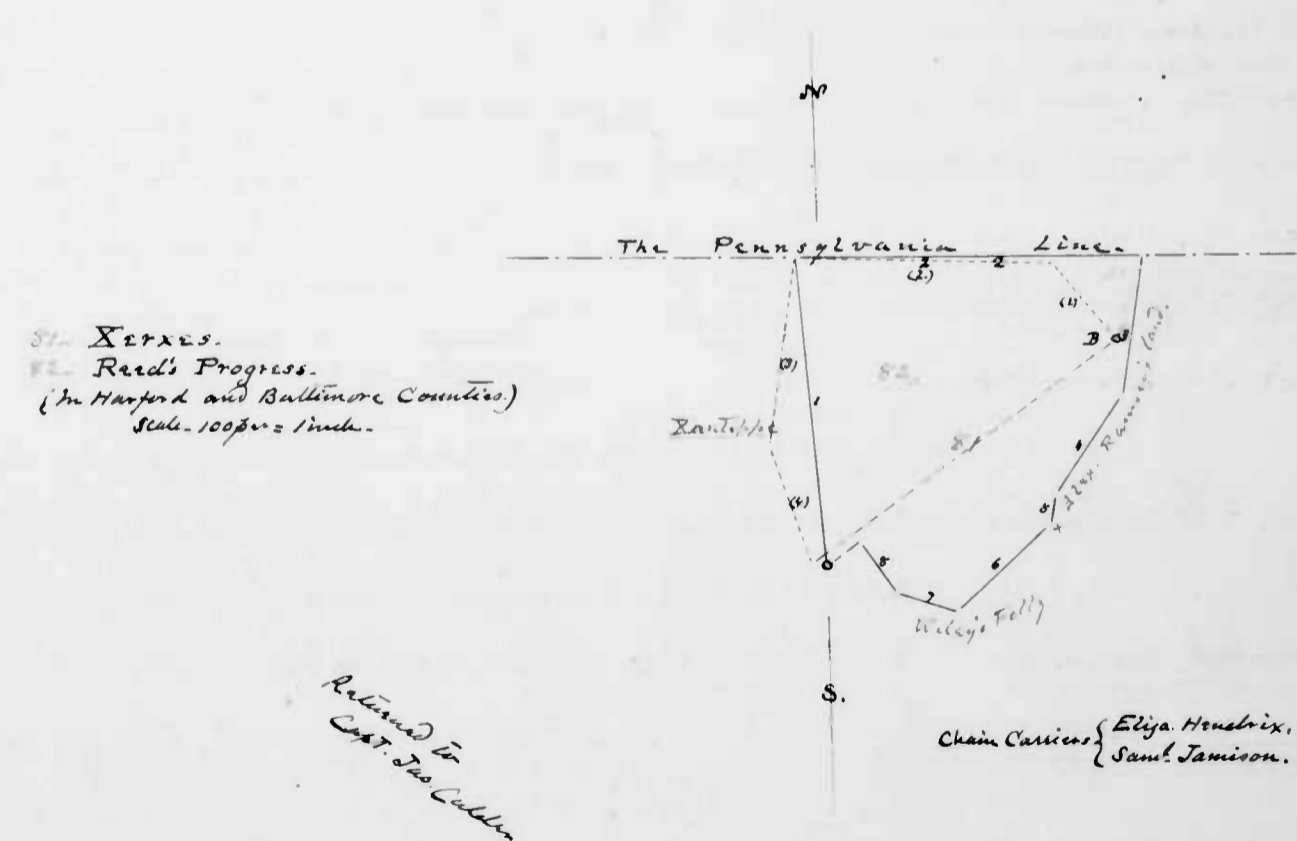 N
The Pennsylvania Line.
2 2
(2.)
(1)
81. Xerxes.
82. Reed's Progress.
(In Harford and Baltimore Counties.)
Scale - 100 per = 1 inch.
B
(3)
1
82.
Xantippe
Alex. Ramsey's land.
(4)
5
6
8
7
Wiley's Folly
S.
Returned to
Capt. Jas. Calder
Chain Carriers { Elija. Hendrix.
Saml. Jamison.